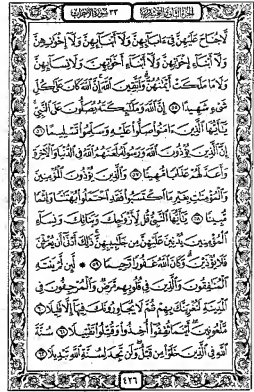 الجزء الثاني والعشرون ٣٣ سورة الأحزاب
لَّا جُنَاحَ عَلَيْهِنَّ فِىٓ ءَابَآئِهِنَّ وَلَآ أَبْنَآئِهِنَّ وَلَآ إِخْوَٰنِهِنَّ
وَلَآ أَبْنَآءِ إِخْوَٰنِهِنَّ وَلَآ أَبْنَآءِ أَخَوَٰتِهِنَّ وَلَا نِسَآئِهِنَّ
وَلَا مَا مَلَكَتْ أَيْمَٰنُهُنَّ وَٱتَّقِينَ ٱللَّهَ إِنَّ ٱللَّهَ كَانَ عَلَىٰ كُلِّ
شَىْءٍ شَهِيدًا ٥٥ إِنَّ ٱللَّهَ وَمَلَٰٓئِكَتَهُۥ يُصَلُّونَ عَلَى ٱلنَّبِىِّ
يَٰٓأَيُّهَا ٱلَّذِينَ ءَامَنُوا۟ صَلُّوا۟ عَلَيْهِ وَسَلِّمُوا۟ تَسْلِيمًا ٥٦
إِنَّ ٱلَّذِينَ يُؤْذُونَ ٱللَّهَ وَرَسُولَهُۥ لَعَنَهُمُ ٱللَّهُ فِى ٱلدُّنْيَا وَٱلْءَاخِرَةِ
وَأَعَدَّ لَهُمْ عَذَابًا مُّهِينًا ٥٧ وَٱلَّذِينَ يُؤْذُونَ ٱلْمُؤْمِنِينَ
وَٱلْمُؤْمِنَٰتِ بِغَيْرِ مَا ٱكْتَسَبُوا۟ فَقَدِ ٱحْتَمَلُوا۟ بُهْتَٰنًا وَإِثْمًا
مُّبِينًا ٥٨ يَٰٓأَيُّهَا ٱلنَّبِىُّ قُل لِّأَزْوَٰجِكَ وَبَنَاتِكَ وَنِسَآءِ
ٱلْمُؤْمِنِينَ يُدْنِينَ عَلَيْهِنَّ مِن جَلَٰبِيبِهِنَّ ذَٰلِكَ أَدْنَىٰٓ أَن يُعْرَفْنَ
فَلَا يُؤْذَيْنَ وَكَانَ ٱللَّهُ غَفُورًا رَّحِيمًا ٥٩ لَّئِن لَّمْ يَنتَهِ
ٱلْمُنَٰفِقُونَ وَٱلَّذِينَ فِى قُلُوبِهِم مَّرَضٌ وَٱلْمُرْجِفُونَ فِى
ٱلْمَدِينَةِ لَنُغْرِيَنَّكَ بِهِمْ ثُمَّ لَا يُجَاوِرُونَكَ فِيهَآ إِلَّا قَلِيلًا ٦٠
مَّلْعُونِينَ أَيْنَمَا ثُقِفُوٓا۟ أُخِذُوا۟ وَقُتِّلُوا۟ تَقْتِيلًا ٦١ سُنَّةَ
ٱللَّهِ فِى ٱلَّذِينَ خَلَوْا۟ مِن قَبْلُ وَلَن تَجِدَ لِسُنَّةِ ٱللَّهِ تَبْدِيلًا ٦٢
٤٢٦